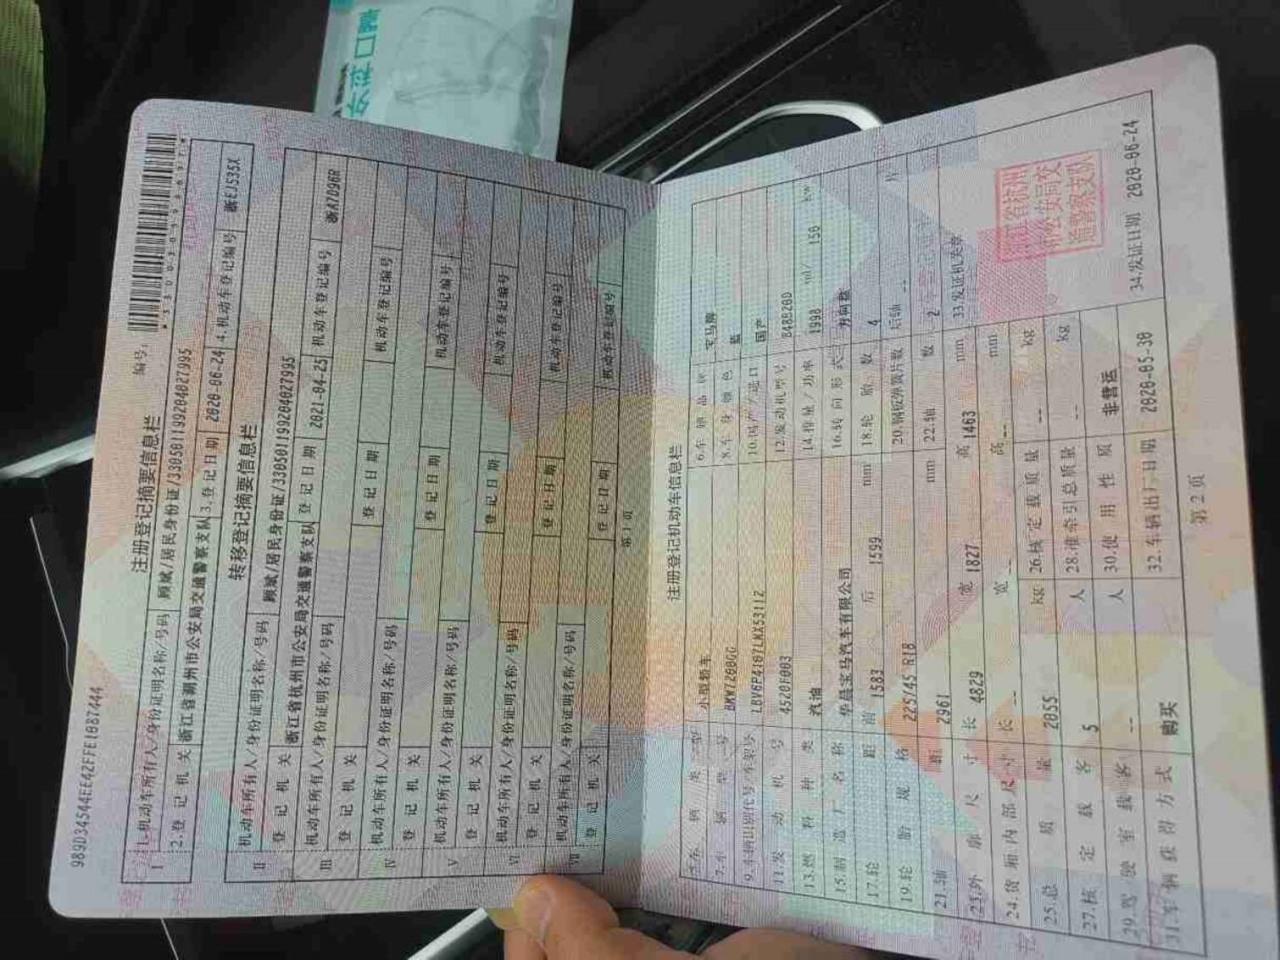 989D34544EE42FFE1087444
注册登记摘要信息栏
编号:
Ⅰ 1.机动车所有人/身份证明名称/号码 顾斌/居民身份证/330501199204027995
2.登记机关 浙江省湖州市公安局交通警察支队 3.登记日期 2020-06-24 4.机动车登记编号 浙EJS35X
转移登记摘要信息栏
Ⅱ 机动车所有人/身份证明名称/号码 顾斌/居民身份证/330501199204027995
登记机关 浙江省杭州市公安局交通警察支队 登记日期 2021-04-25 机动车登记编号 浙A7D96R
Ⅲ 机动车所有人/身份证明名称/号码
登记机关 登记日期 机动车登记编号
Ⅳ 机动车所有人/身份证明名称/号码
登记机关 登记日期 机动车登记编号
Ⅴ 机动车所有人/身份证明名称/号码
登记机关 登记日期 机动车登记编号
Ⅵ 机动车所有人/身份证明名称/号码
登记机关 登记日期 机动车登记编号
Ⅶ 机动车所有人/身份证明名称/号码
登记机关 登记日期 机动车登记编号
第1页
注册登记机动车信息栏
5.车辆类型 小型轿车 6.车辆品牌 宝马牌
7.车辆型号 8.车身颜色 蓝
9.车辆识别代号/车架号 LBV6P4107LMX53112 10.国产/进口 国产
11.发动机号 4520F003 12.发动机型号 B48B20D
13.燃料种类 汽油 14.排量/功率 1998 ml/ 156 kw
15.制造厂名称 华晨宝马汽车有限公司 16.转向形式 方向盘
17.轮距 前 1583 后 1599 mm 18.轮胎数 4
19.轮胎规格 225/45 R18 20.钢板弹簧片数 后轴 -- 片
21.轴距 2961 mm 22.轴数 2
23.外廓尺寸 长 4829 宽 1827 高 1463 mm 33.发证机关章
24.货厢内部尺寸 长 -- 宽 -- 高 -- mm
25.总质量 2055 kg 26.核定载质量 -- kg
27.核定载客 5 人 28.准牵引总质量 -- kg
29.驾驶室载客 -- 人 30.使用性质 非营运
31.车辆获得方式 购买 32.车辆出厂日期 2020-05-30 34.发证日期 2020-06-24
第2页